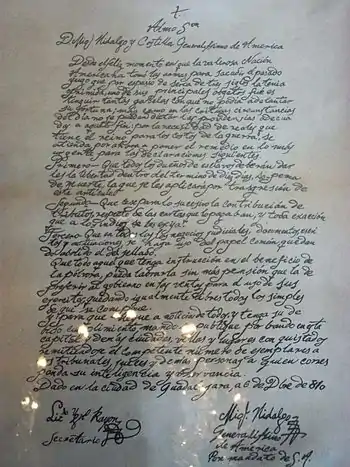 Almo Sor
D. Migl Hidalgo y Costilla Generalísimo de America
Desde el feliz momento en que la valerosa Nación
Americana tomó las armas para sacudir el pesado
yugo que por espacio de cerca de tres siglos la tenía
oprimida, uno de sus principales objetos fué es
tinguir tantas gabelas con que no podía adelantar
su fortuna; mas como en las críticas circunstancias
del día no se puedan dictar las providencias adecua
das a aquel fin, por la necesidad de reales que
tiene el reino para los costos de la guerra, se
atienda por ahora a poner el remedio en lo más
urgente para las declaraciones siguientes.
Primero = Que todos los dueños de esclavos deberán dar
les la libertad dentro del término de diez días, so pena
de muerte la que se les aplicará por trasgresión de
este artículo.
Segundo = Que cese para lo sucesivo la contribución de
tributos, respecto de las castas que lo pagaban, y toda exacción
que a los indios se les exija.
Tercero = Que en todos los negocios judiciales, documentos, escri
tos y actuaciones se haga uso del papel común quedan
do abolido el del sellado.
Que todo aquel que tenga instrucción en el beneficio de
la pólvora, pueda labrarla sin más pensión que la de
preferir al gobierno en las ventas para el uso de sus
ejércitos, quedando igualmente libres todos los simples
de que se compone.
Y para que llegue a noticia de todos y tenga su de
bido cumplimiento, mando se publique por bando en esta
capital y demás ciudades, villas y lugares conquistados
remitiéndose el competente número de ejemplares a
tribunales, jueces y demás personas a quien corres
ponda su inteligencia y observancia.
Dado en la ciudad de Guadalajara, a 6 de Dbre de 810
Lic. Ignº Rayon
Secretario
Migl Hidalgo
Generalísimo
de America
Por mandato de S. A.